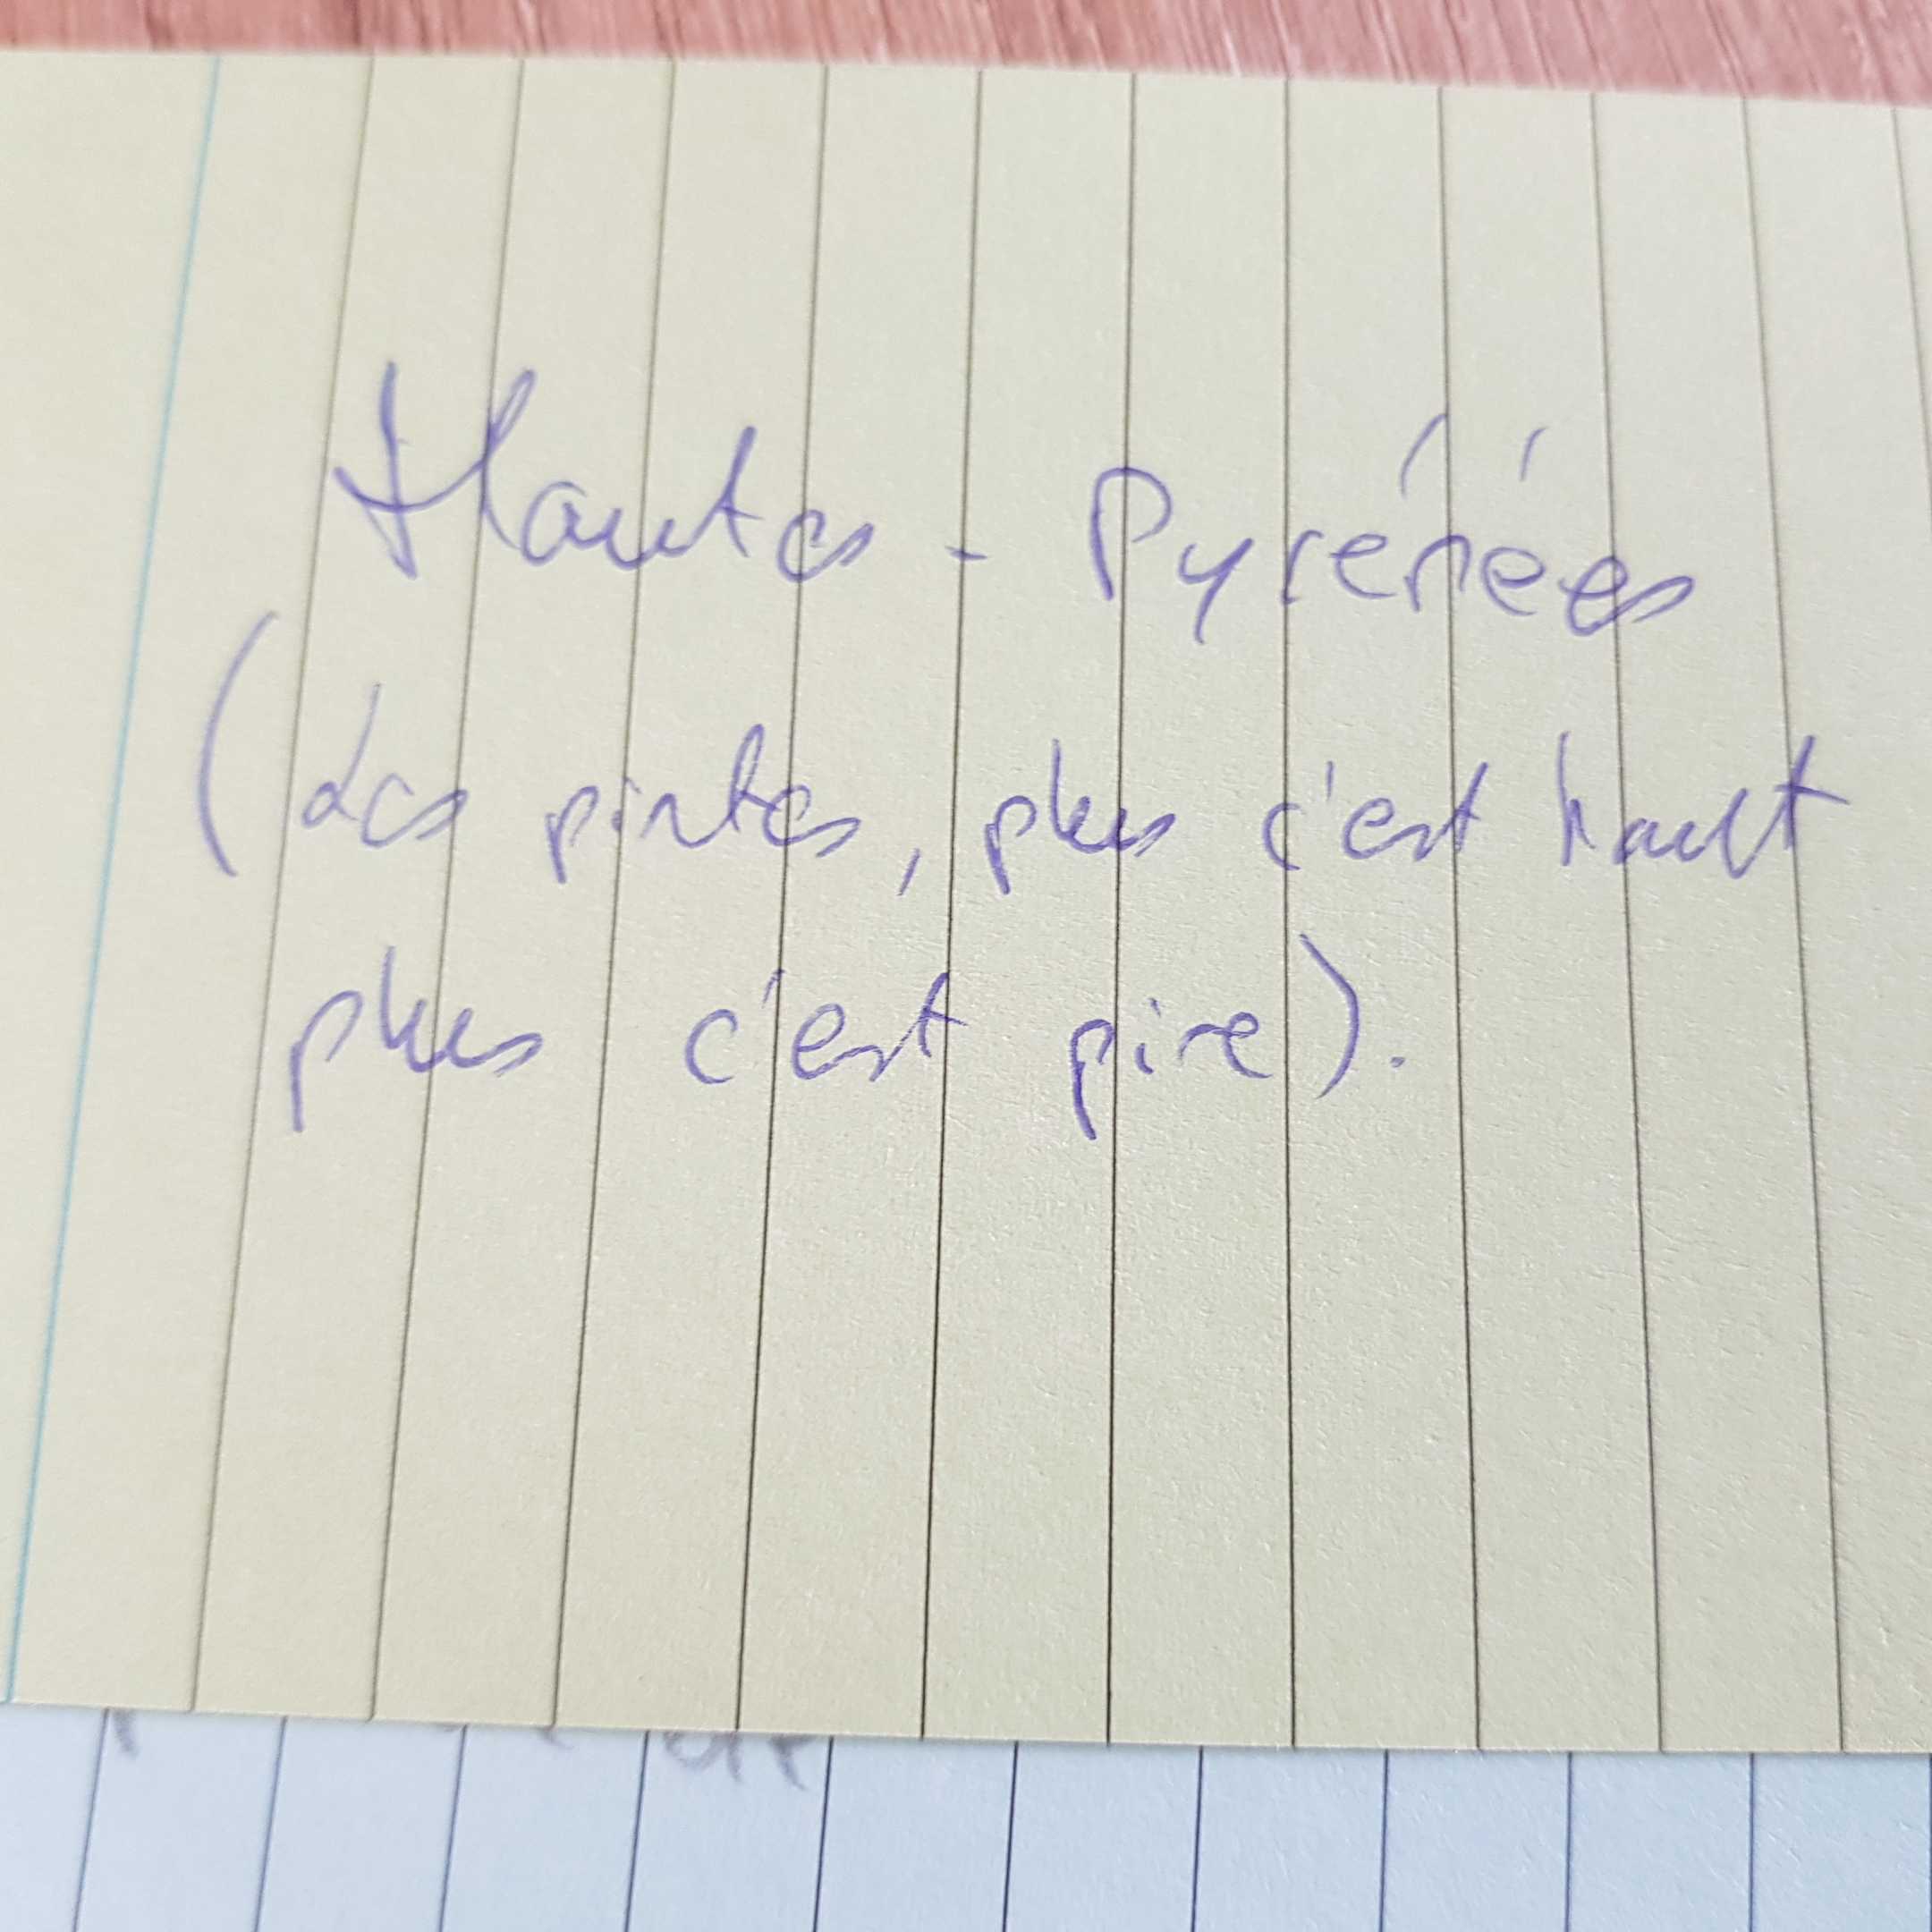 Hautes-Pyrénées
(Les pintes, plus c'est haut
plus c'est pire).